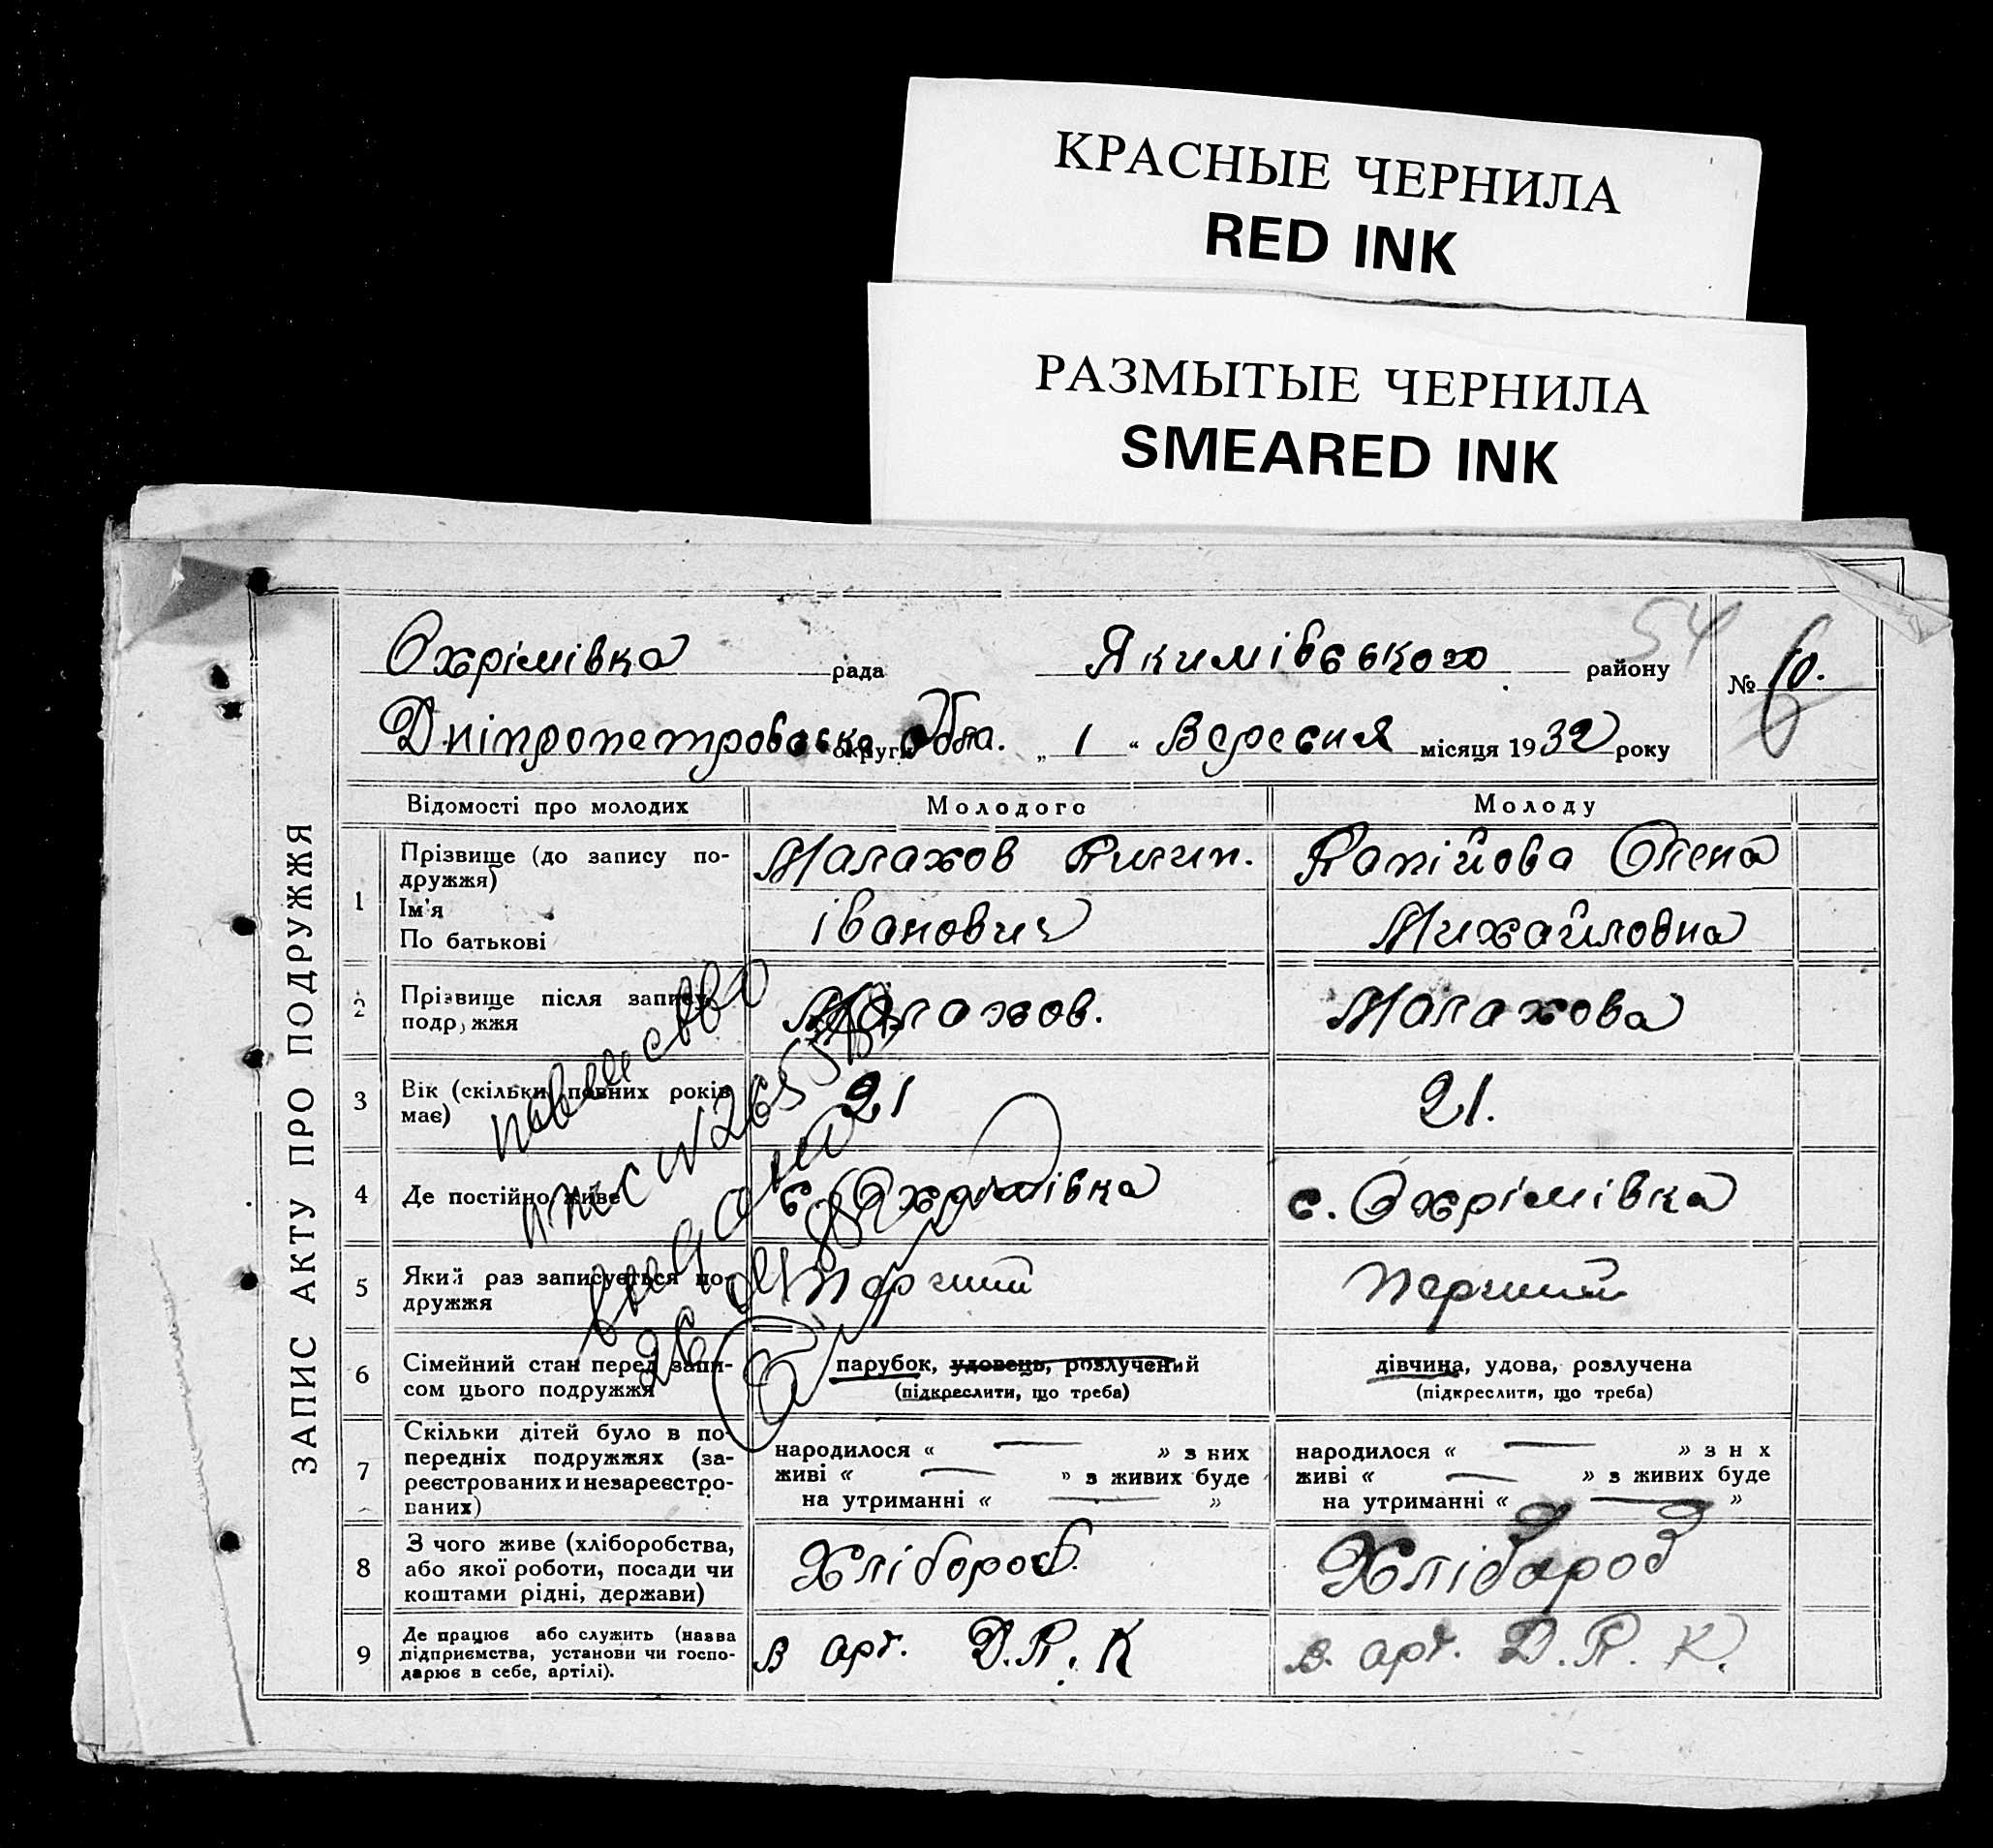 КРАСНЫЕ ЧЕРНИЛА
RED INK
РАЗМЫТЫЕ ЧЕРНИЛА
SMEARED INK
ЗАПИС АКТУ ПРО ПОДРУЖЖЯ
54
Охрімівка рада Якимівського району
№ 10. 6
Дніпропетровська округи Обла. „ 1 “ Вересня місяця 1932 року
Відомості про молодих Молодого Молоду
1 Прізвище (до запису по-
дружжя)
Ім'я
По батькові
Малахов Пилип.
Іванович
Капійова Олена
Михайловна
2 Прізвище після запису
подружжя
Малахов.
Малахова
3 Вік (скільки повних років
має)
21
21.
4 Де постійно живе
с. Охрімівка
с. Охрімівка
5 Який раз записується по-
дружжя
Перший
Перший
6 Сімейний стан перед запи-
сом цього подружжя
парубок, удовець, розлучений
(підкреслити, що треба)
дівчина, удова, розлучена
(підкреслити, що треба)
7 Скільки дітей було в по-
передніх подружжях (за-
реєстрованих и незареєстро-
ваних)
народилося « — » з них
живі « — » з живих буде
на утриманні « — »
народилося « — » з н х
живі « — » з живих буде
на утриманні « — »
8 З чого живе (хліборобства,
або якої роботи, посади чи
коштами рідні, держави)
Хлібороб.
Хлібароб
9 Де працює або служить (назва
підприємства, установи чи госпо-
дарює в себе, артілі).
в арт. Д.П.К
в. арт. Д.П.К.